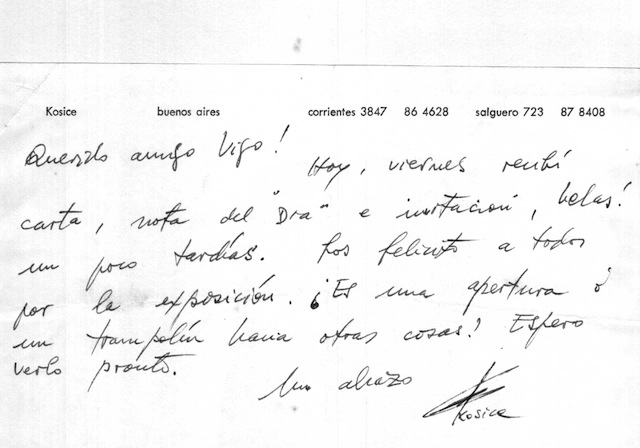 Kosice buenos aires corrientes 3847 86 4628 salguero 723 87 8408
Querido amigo Vigo!
Hoy, viernes recibí
carta, nota del "Dia" e invitación, helas!
un poco tardías. Los felicito a todos
por la exposición. ¡Es una apertura ó
un trampolín hacia otras cosas! Espero
verlo pronto.
Un abrazo
Kosice